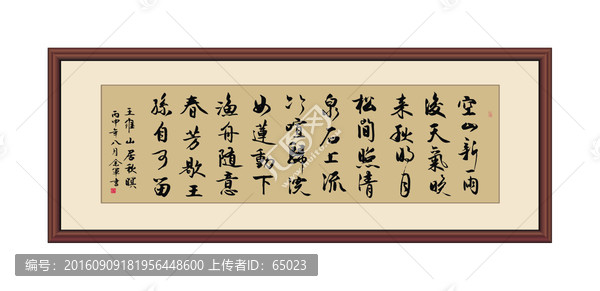 空山新雨
後天氣晚
来秋明月
松間照清
泉石上流
竹喧歸浣
女蓮動下
漁舟隨意
春芳歇王
孫自可留
王維山居秋暝
丙申年八月金書
编号：20160909181956448600 上传者ID：65023